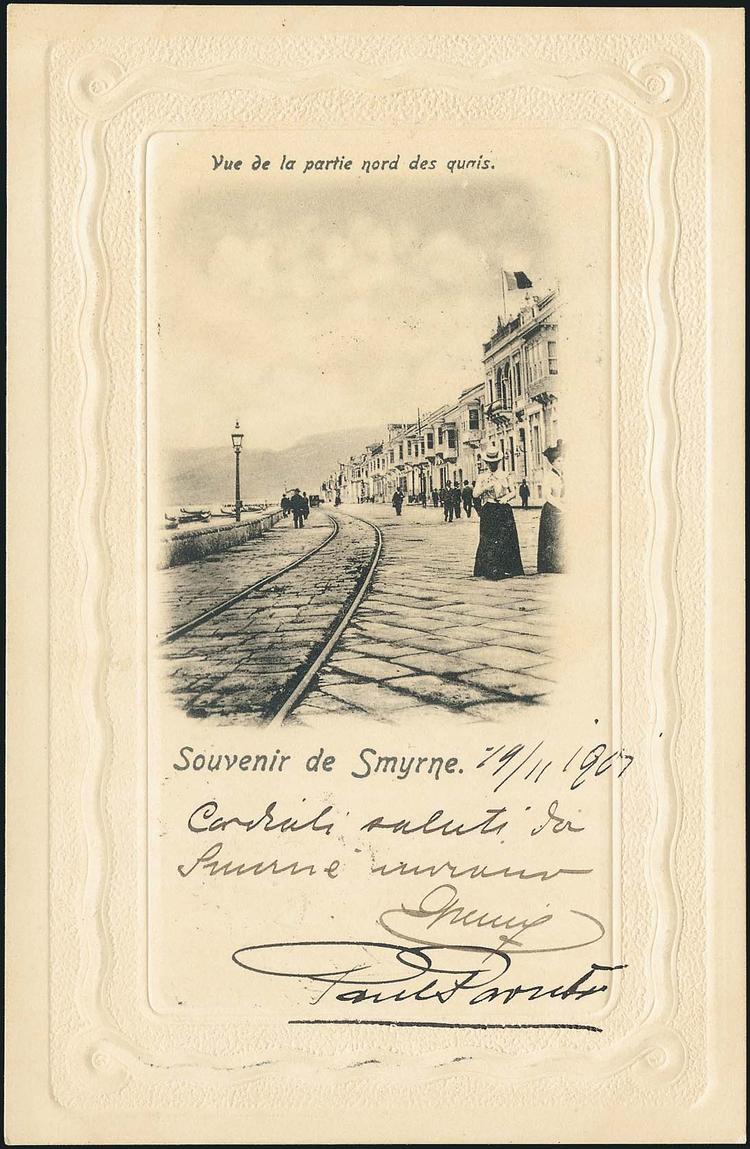 Vue de la partie nord des quais.
Souvenir de Smyrne. 19/11 1901
Cordiali saluti da
Smirne
Paul